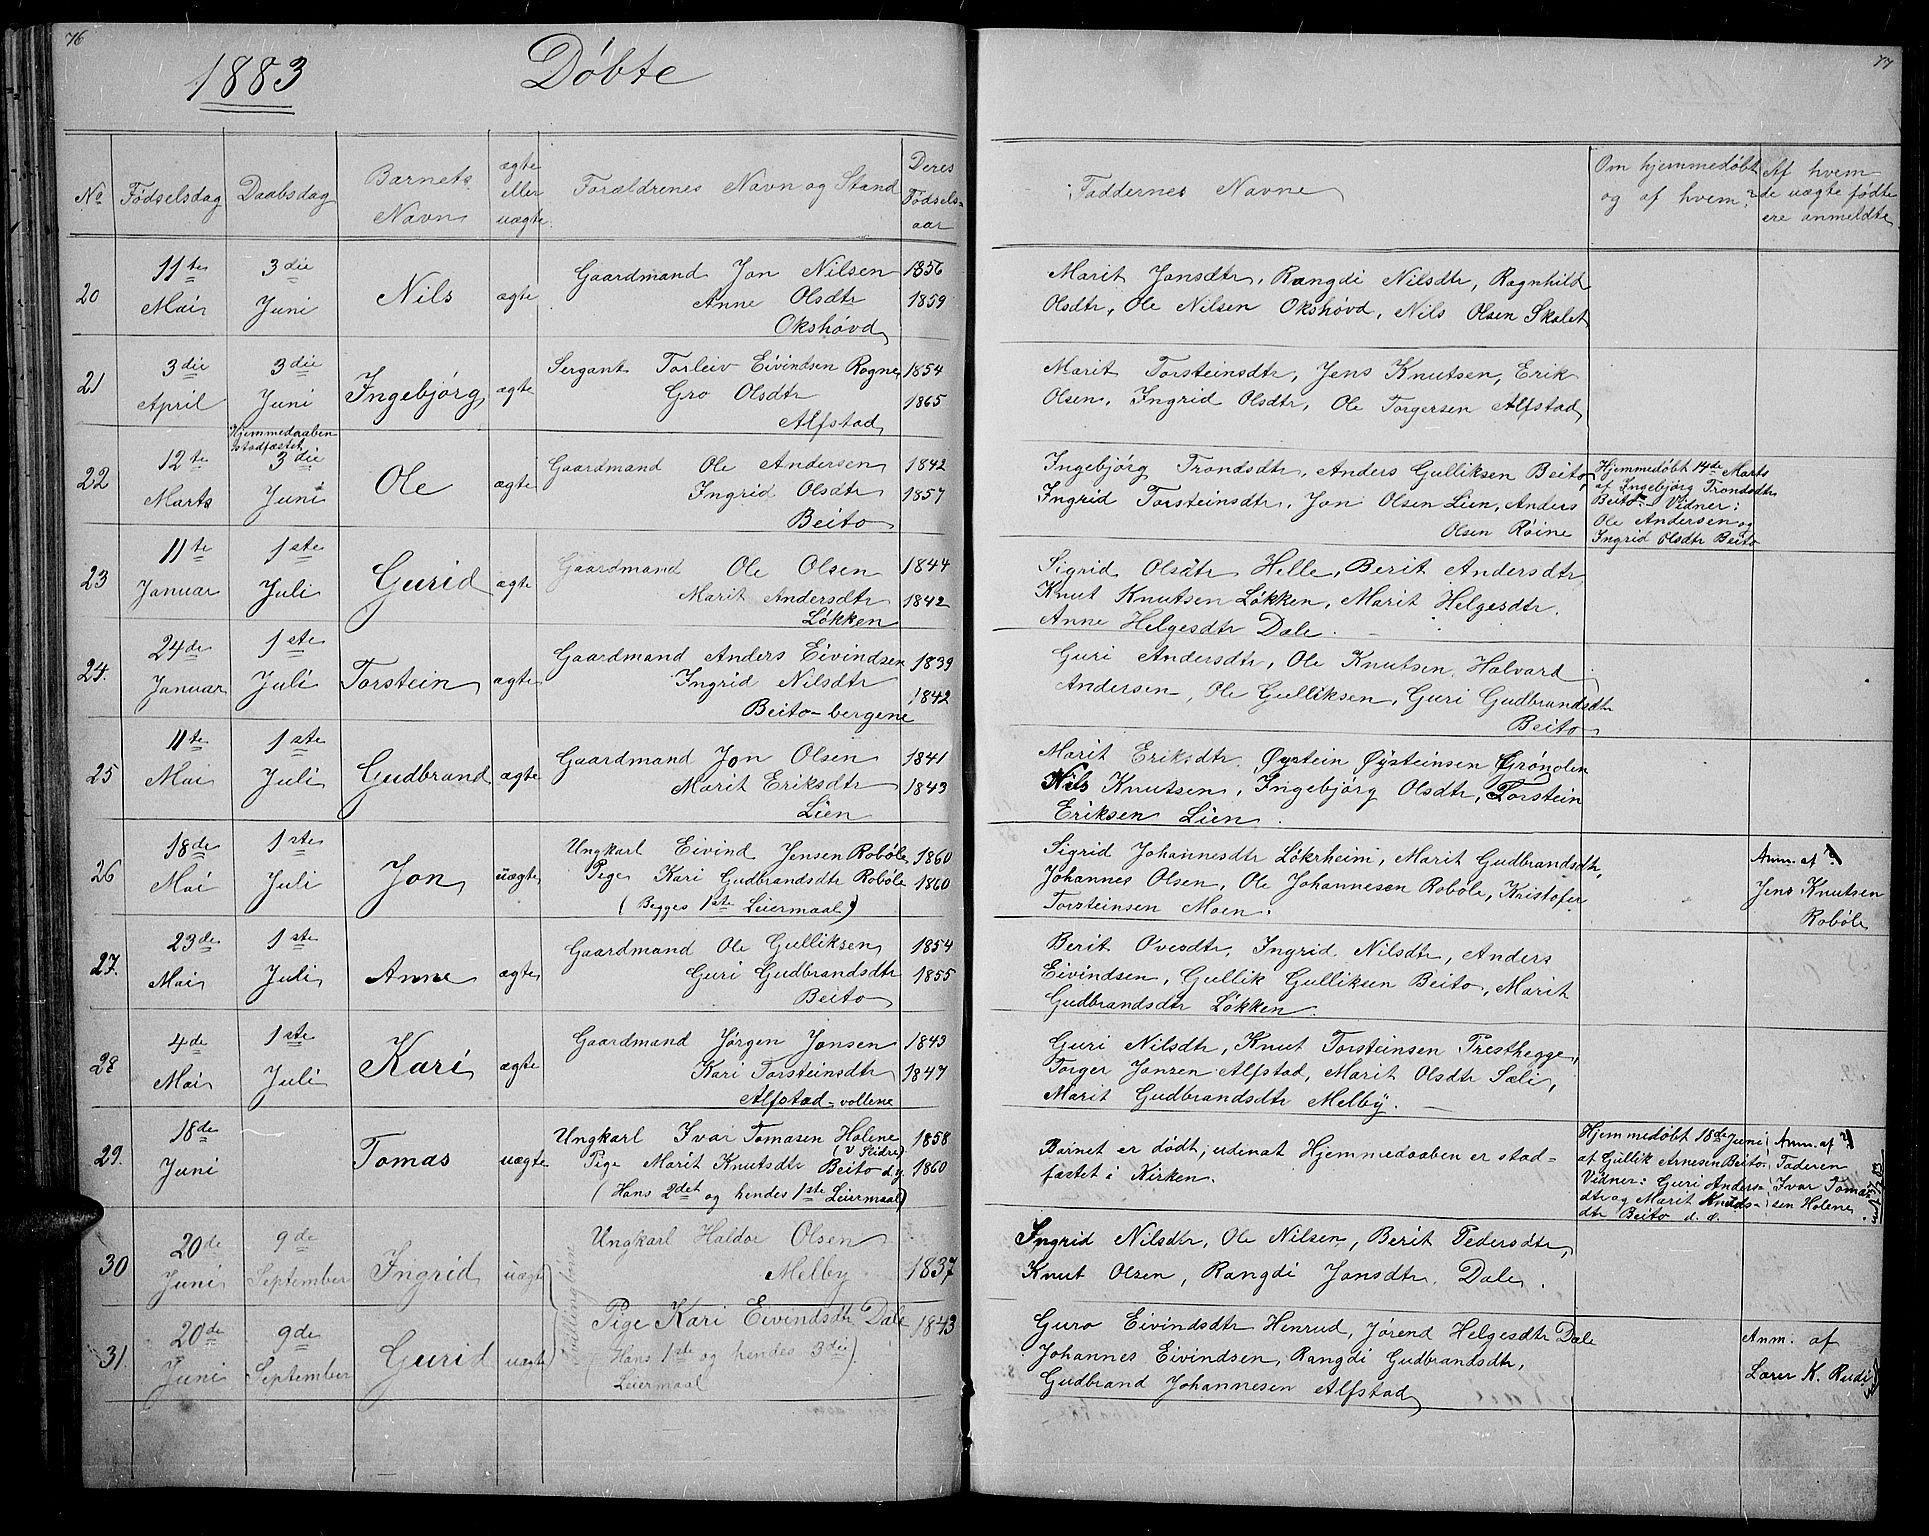 76
1883 Døbte
No Fødselsdag Daabsdag Barnets Navn ægte eller uægte Forældrenes Navn og Stand Deres Fødsels-aar
20 11te Mai 3die Juni Nils ægte Gaardmand Jon Nilsen 1856
Anne Olsdtr 1859
Okshøvd
21 3die April 3die Juni Ingebjørg ægte Sergant Torleiv Eivindsen Rogne 1854
Gro Olsdtr 1865
Alfstad
22 12te Marts Hjemmedaaben stadfæstet 3die Juni Ole ægte Gaardmand Ole Andersen 1842
Ingrid Olsdtr 1857
Beito
23 11te Januar 1ste Juli Gurid ægte Gaardmand Ole Olsen 1844
Marit Andersdtr 1842
Løkken
24. 24de Januar 1ste Juli Torstein ægte Gaardmand Anders Eivindsen 1839
Ingrid Nilsdtr 1842
Beito-bergene
25 11te Mai 1ste Juli Gudbrand ægte Gaardmand Jon Olsen 1841
Marit Eriksdtr 1843
Lien
26 18de Mai 1ste Juli Jon uægte Ungkarl Eivind Jensen Robøle 1860
Pige Kari Gudbrandsdtr Robøle 1860
(Begges 1ste Leiermaal)
27. 23de Mai 1ste Juli Anne ægte Gaardmand Ole Gulliksen 1854
Guri Gudbrandsdtr 1855
Beito
28 4de Mai 1ste Juli Kari ægte Gaardmand Jørgen Jonsen 1843
Kari Torsteinsdtr 1847
Alfstad-vollene
29. 18de Juni Tomas uægte Ungkarl Ivar Tomasen Holene 1858
(V Slidre)
Pige Marit Knutsdtr Beito d.y 1860
(Hans 2det og hendes 1ste Leiermaal)
30 20de Juni 9de September Ingrid uægte Ungkarl Haldor Olsen
Melby 1837
31. 20de Juni 9de September Gurid uægte Tvillingbørn Pige Kari Eivindsdtr Dale 1843
(Hans 1ste og hendes 3die)
Leiermaal
77
Faddernes Navne Om hjemmedøbt og af hvem? Af hvem de uægte fødte ere anmeldte
Marit Jonsdtr, Rangdi Nilsdtr, Ragnhild
Olsdtr, Ole Nilsen Okshøvd, Nils Olsen Skolet
Marit Torsteinsdtr, Jens Knutsen, Erik
Olsen, Ingrid Olsdtr, Ole Torgersen Alfstad
Ingebjørg Trondsdtr, Anders Gulliksen Beito,
Ingrid Torsteinsdtr, Jon Olsen Lien, Anders
Olsen Røine
Hjemmedøbt 14de Marts
af Ingebjørg Trondsdtr
Beito - Vidner:
Ole Andersen og
Ingrid Olsdtr Beito
Sigrid Olsdtr Helle, Berit Andersdtr
Knut Knutsen Løkken, Marit Helgesdtr.
Anne Helgesdtr Dale.
Guri Andersdtr, Ole Knutsen, Halvard
Andersen, Ole Gulliksen, Guri Gudbrandsdtr
Beito
Marit Eriksdtr. Øystein Øysteinsen Grønolen
Nils Knutsen, Ingebjørg Olsdtr, Torstein
Eriksen Lien.
Sigrid Johannesdtr Løkrheim, Marit Gudbrandsdtr,
Johannes Olsen, Ole Johannesen Robøle, Kristofer
Torsteinsen Moen.
Anm. af
Jens Knutsen
Robøle
Berit Overdtr, Ingrid Nilsdtr, Anders
Eivindsen, Gullik Gulliksen Beito, Marit
Gudbrandsdtr Løkken.
Guri Nilsdtr, Knut Torsteinsen Presthegge,
Torger Jonsen Alfstad, Marit Olsdtr Sæli,
Marit Gudbrandsdtr Melby.
Barnet er dødt, udenat Hjemmedaaben er stad-
fæstet i Kirken.
Hjemmedøbt 18de Juni
af Gullik Arnesen Beito.
Vidner: Guri Anders-
dtr og Marit Knuds-
dtr Beito d. æ.
Anm. af
Faderen
Ivar Toma-
sen Holene
Ingrid Nilsdtr, Ole Nilsen, Berit Pedersdtr,
Knut Olsen, Rangdi Jonsdtr. Dale.
Guro Eivindsdtr Henrud, Jørend Helgesdtr Dale
Johannes Eivindsen, Rangdi Gudbrandsdtr,
Gudbrand Johannesen Alfstad
Anm. af
Lærer K. Rudi